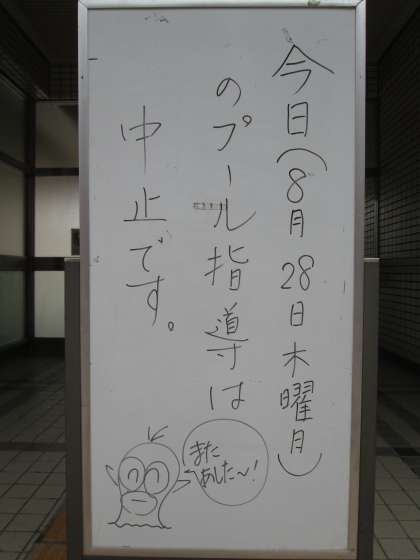 今日(8月28日木曜月)
のプール指導は
中止です。
また
あした〜!